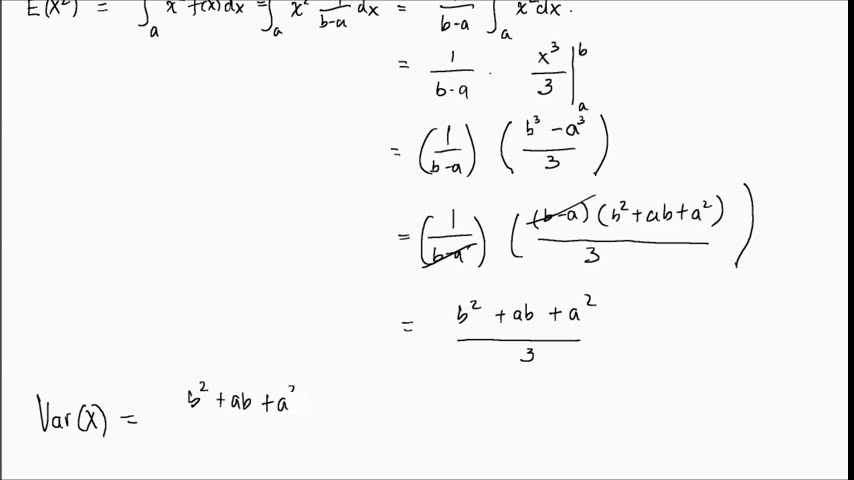 E(X²) = ∫ₐ x² f(x) dx = ∫ₐ x² 1/(b-a) dx = 1/(b-a) ∫ₐ x² dx.
= 1/(b-a) · x³/3 |ₐᵇ
= (1/(b-a)) ((b³ - a³)/3)
= (1/(b-a)) ((b-a)(b² + ab + a²)/3)
= (b² + ab + a²)/3
Var(X) = b² + ab + a²